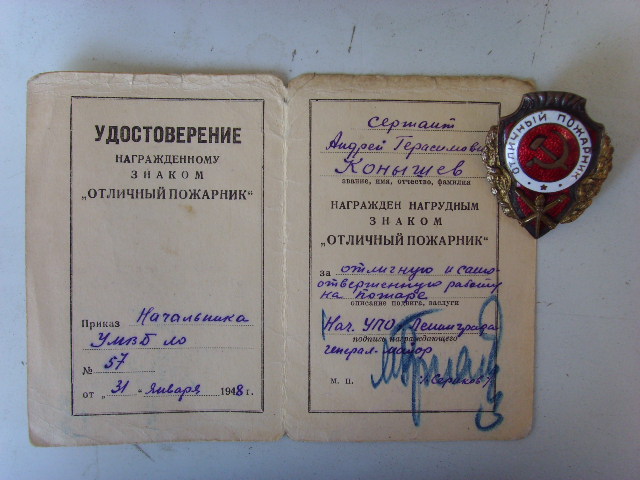 УДОСТОВЕРЕНИЕ
НАГРАЖДЕННОМУ
ЗНАКОМ
„ОТЛИЧНЫЙ ПОЖАРНИК“
Приказ Начальника
УМВД ЛО
№ 57
от „31“ Января 1948 г.
Сержант
Андрей Герасимович
Конышев
звание, имя, отчество, фамилия
НАГРАЖДЕН НАГРУДНЫМ
ЗНАКОМ
„ОТЛИЧНЫЙ ПОЖАРНИК“
за отличную и само-
отверженную работу
на пожаре
описание подвига, заслуги
Нач. УПО Ленинграда
подпись награждающего
генерал-майор
М. П.
ОТЛИЧНЫЙ ПОЖАРНИК